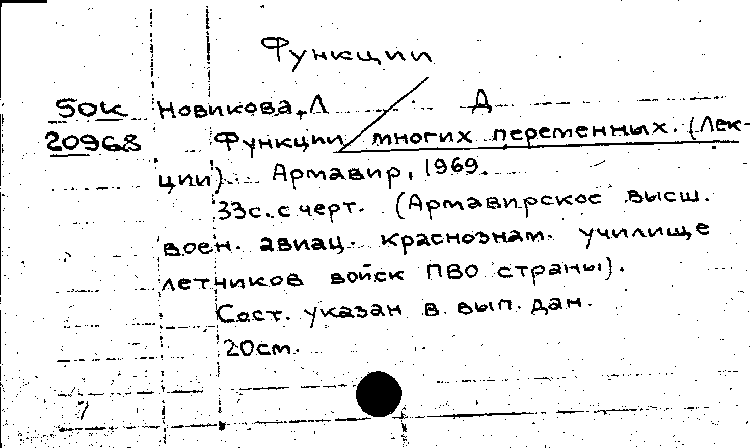 Функции
50к Новикова, Л Д
20968 Функции многих переменных. (Лек-
ции). Армавир, 1969.
33с. с черт. (Армавирское высш.
воен. авиац. краснознам. училище
летчиков войск ПВО страны).
Сост. указан в вып. дан.
20см.